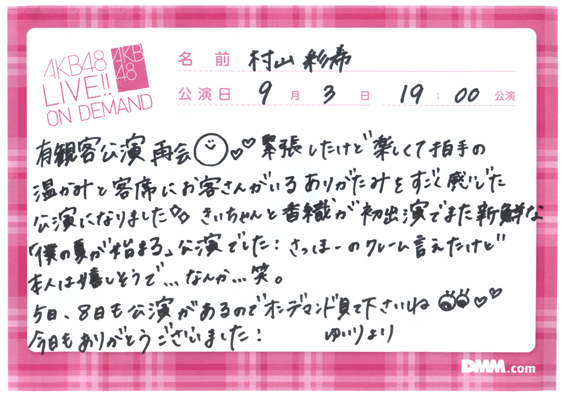 AKB48
LIVE!!
ON DEMAND
AKB
48
名前 村山彩希
公演日 9月3日 19:00公演
有観客公演再会 緊張したけど楽しくて拍手の
温かみと客席にお客さんがいるありがたみをすごく感じた
公演になりました きぃちゃんと香織が初出演でまた新鮮な
「僕の夏が始まる」公演でした! さっほーのクレーム言えたけど
本人は嬉しそうで...なんか...笑。
5日、8日も公演があるのでオンデマンド見て下さいね
今日もありがとうございました! ゆいりより
DMM.com